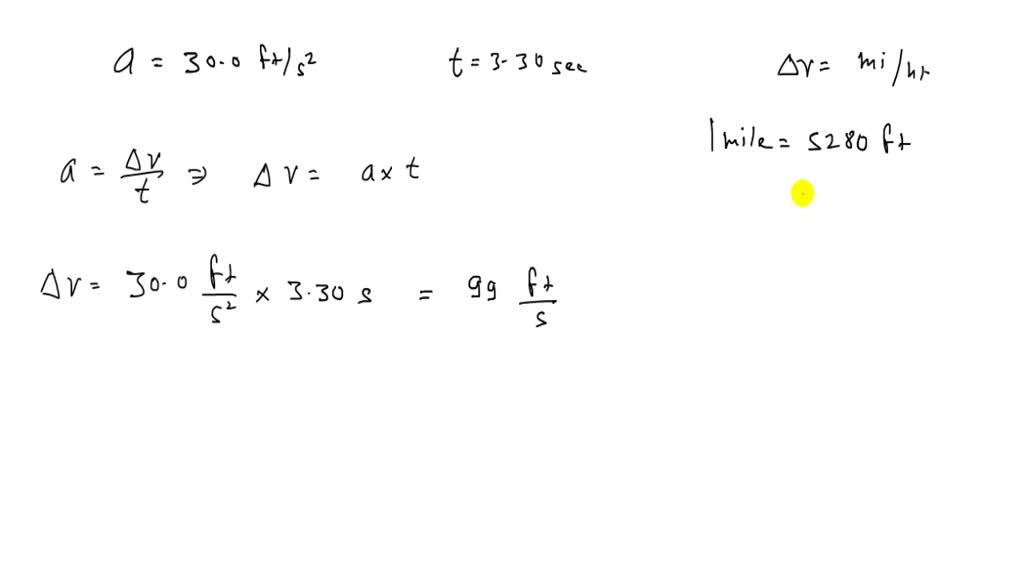 a = 30.0 ft/s² t = 3.30 sec Δv = mi/hr
1 mile = 5280 ft
a = Δv/t ⇒ Δv = a x t
Δv = 30.0 ft/s² x 3.30 s = 99 ft/s